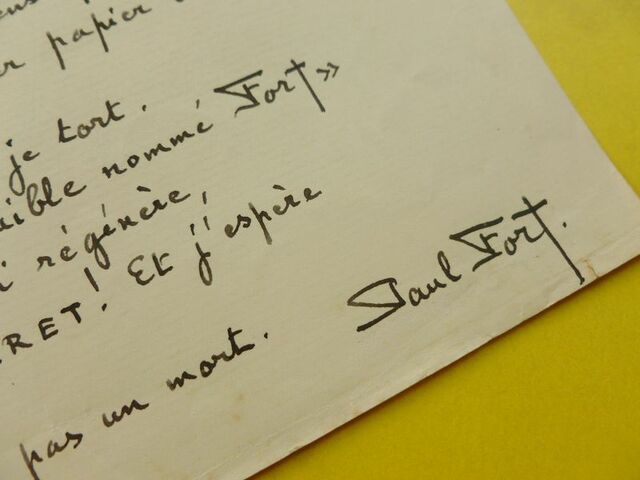 r papier
je tort.
ible nommé Fort»
i régénère,
RET! Et j'espère
pas un mort.
Paul Fort.